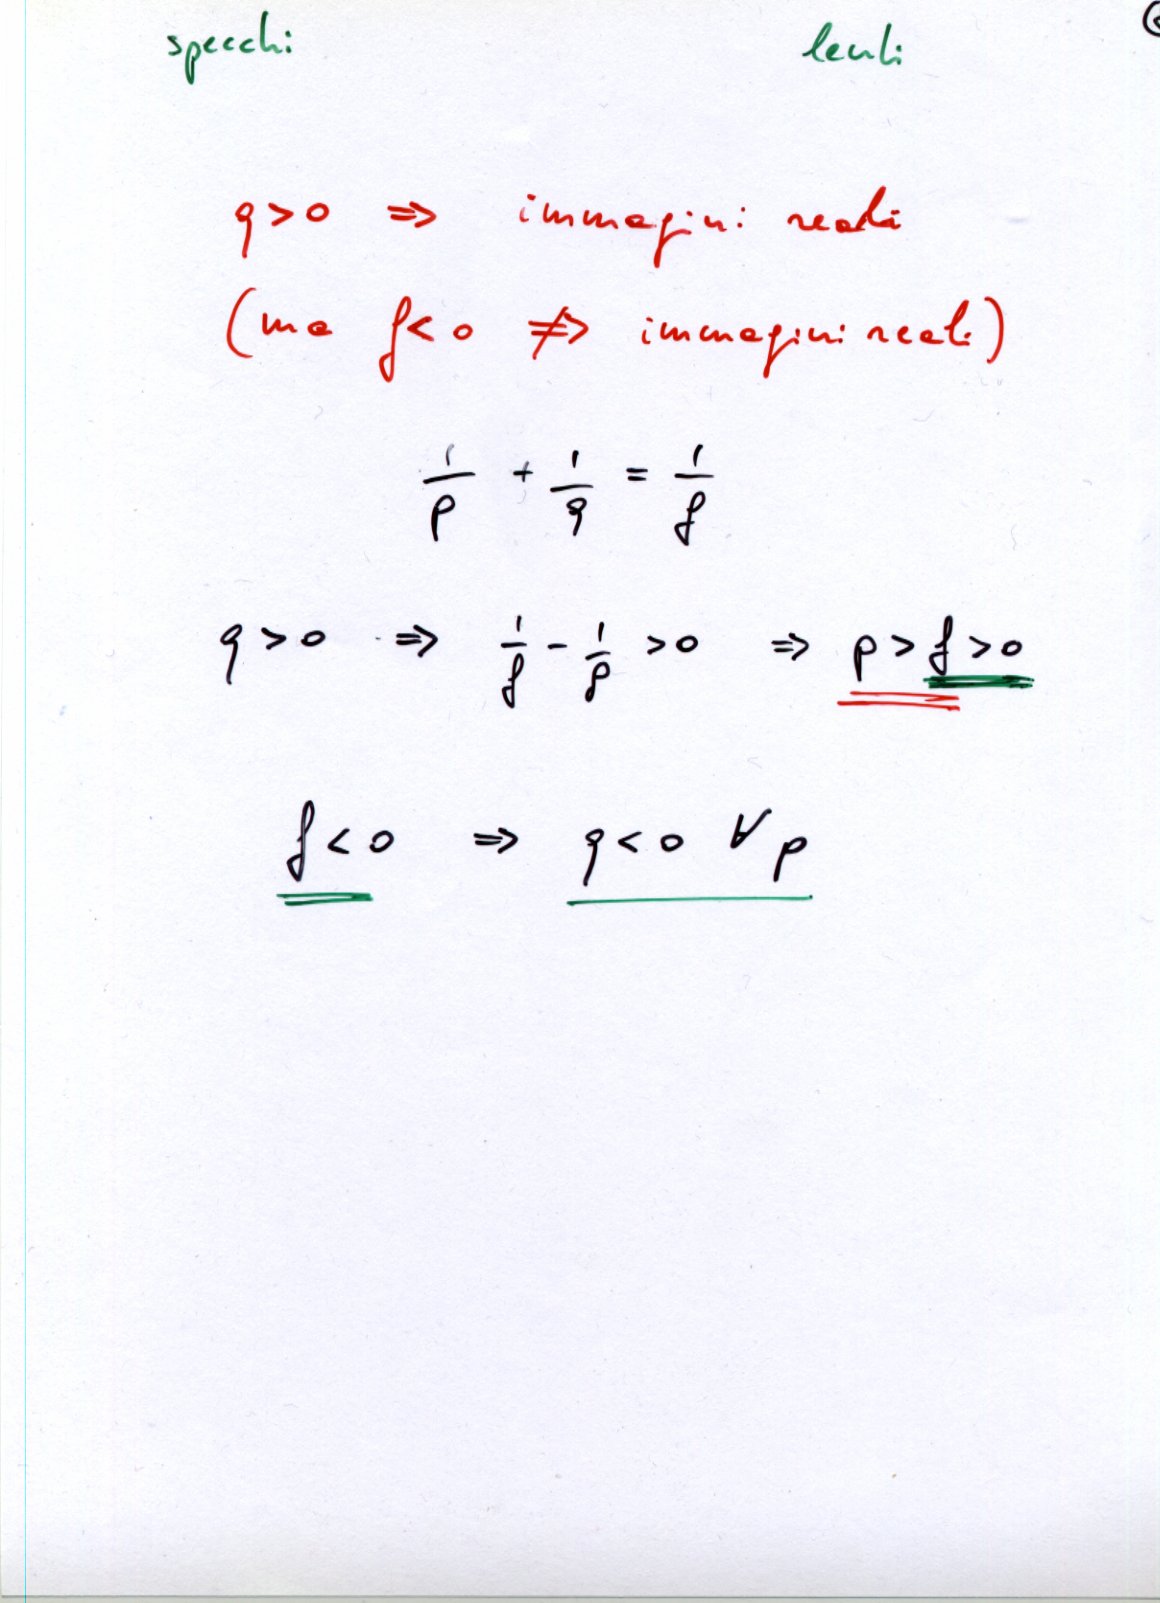 specchi lenti
q > 0 ⇒ immagini reali
(ma f < 0 ⇏ immagini reali)
1/p + 1/q = 1/f
q > 0 ⇒ 1/f - 1/p > 0 ⇒ p > f > 0
f < 0 ⇒ q < 0 ∀ p